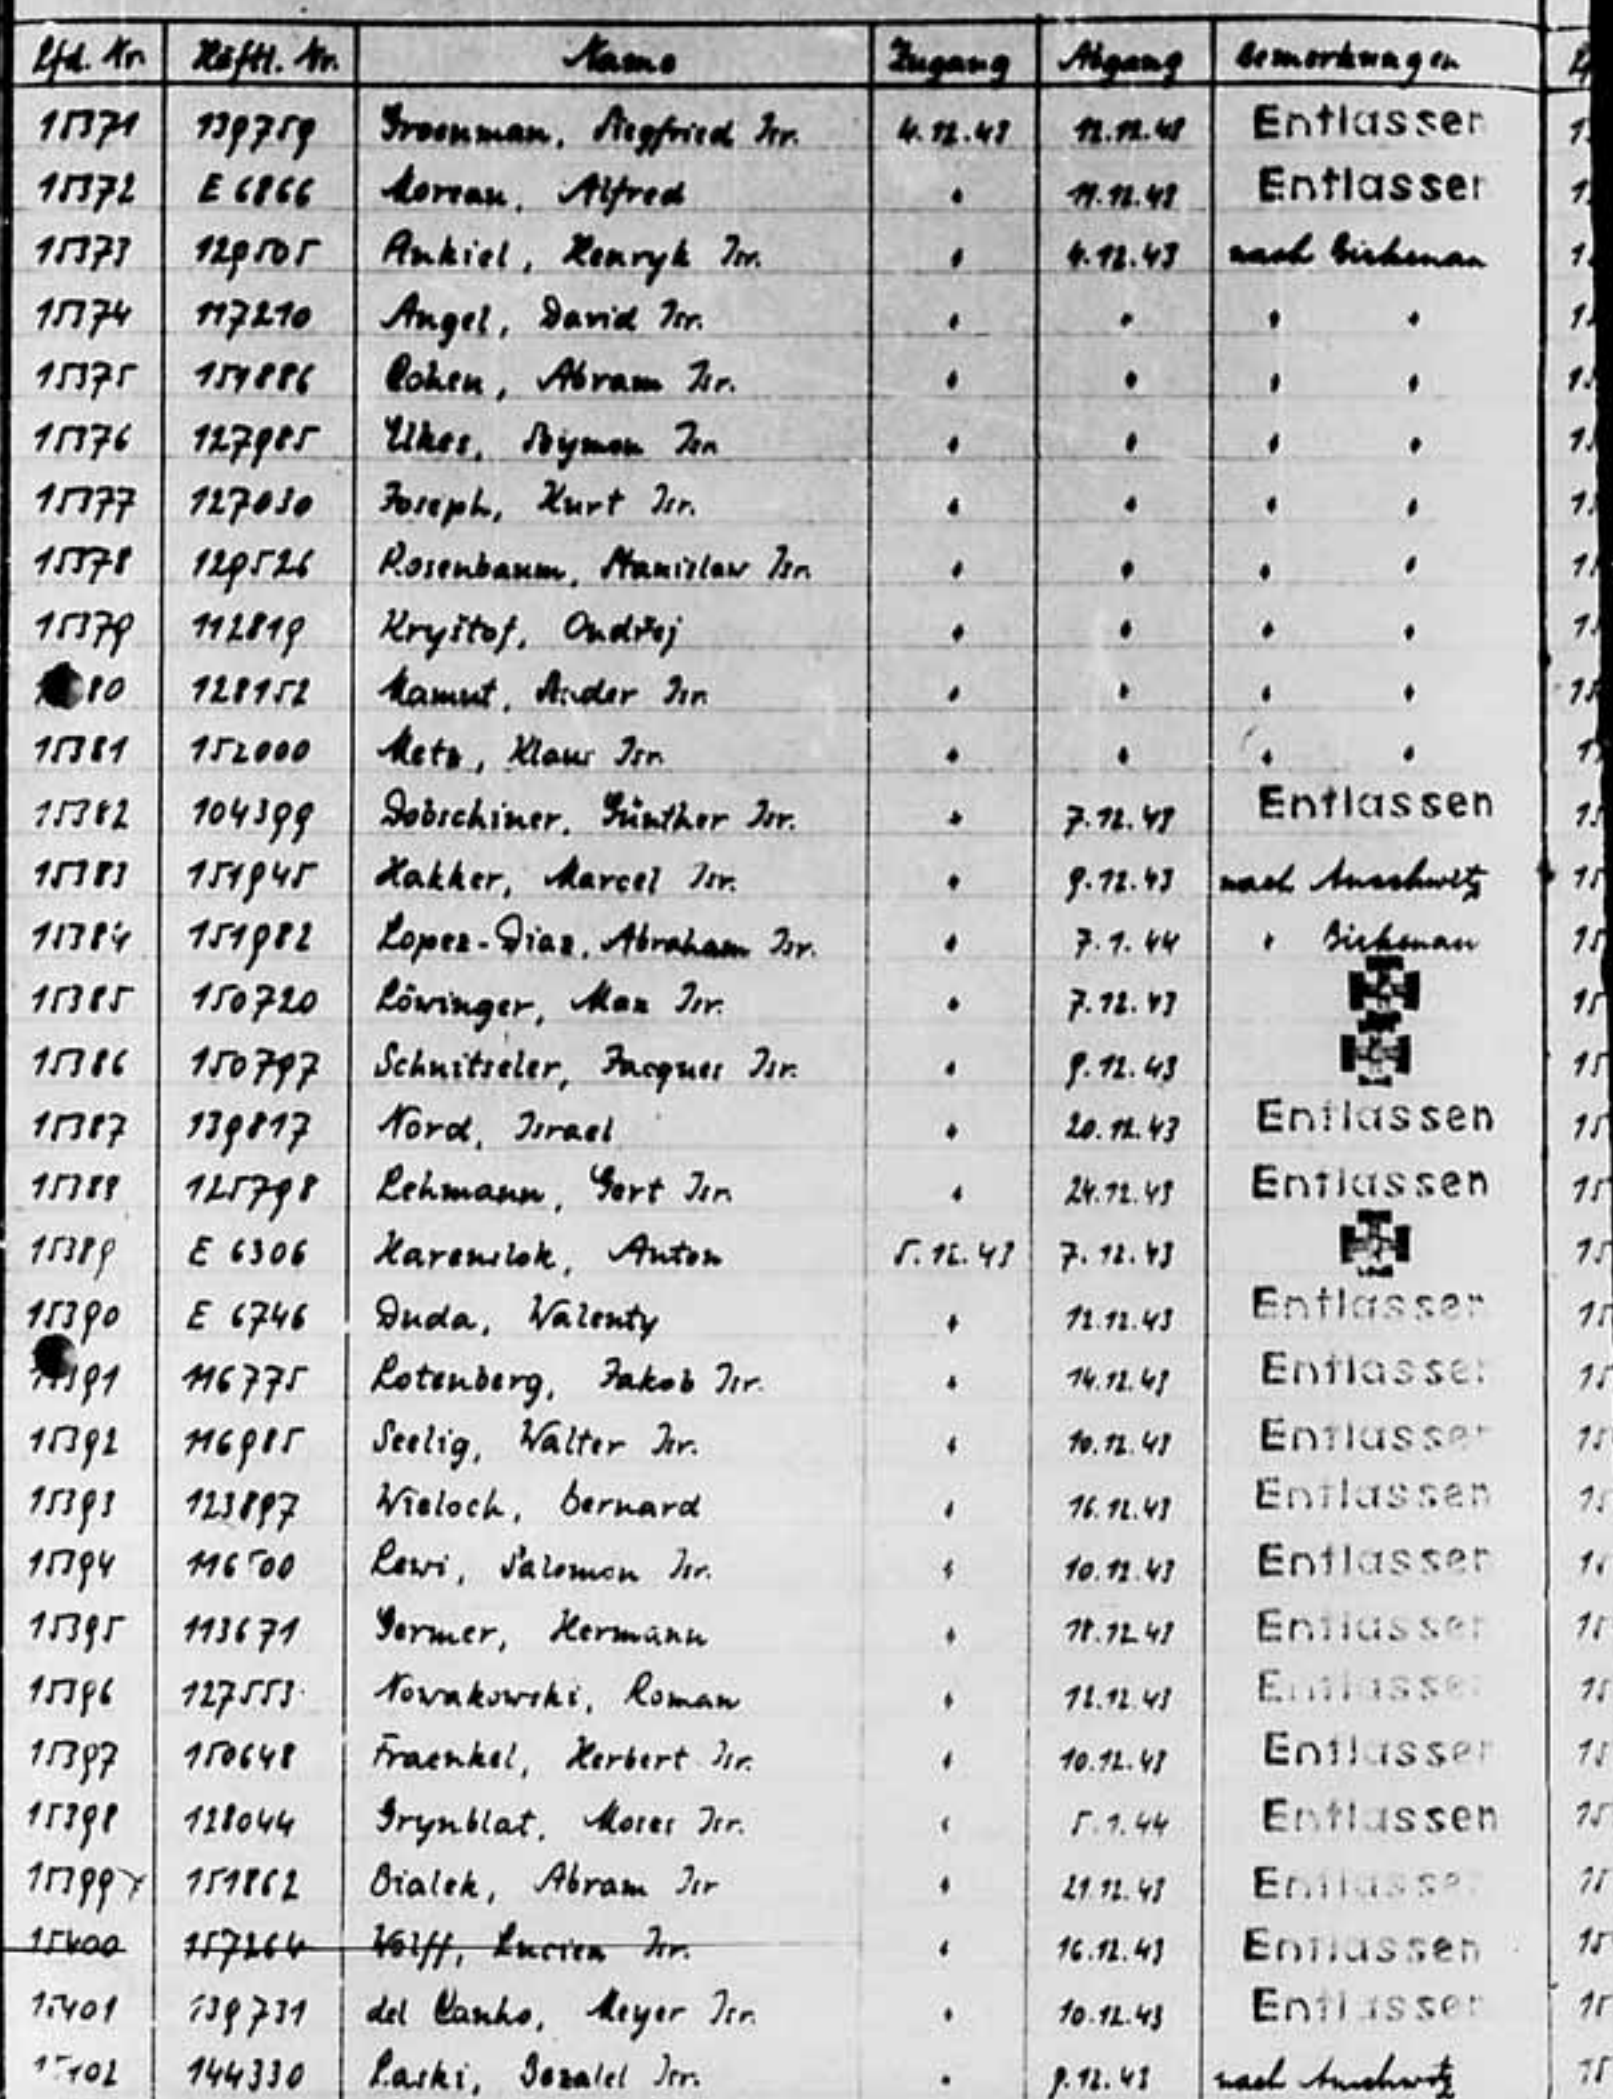 Lfd. Nr. Häftl. Nr. Name Zugang Abgang Bemerkungen
15371 139759 Groenman, Siegfried Isr. 4.12.43 12.12.43 Entlassen
15372 E 6866 Moreau, Alfred " 11.12.43 Entlassen
15373 129505 Ankiel, Henryk Isr. " 4.12.43 nach Birkenau
15374 117210 Angel, David Isr. " " " "
15375 151886 Cohen, Abram Isr. " " " "
15376 127985 Elkes, Szymon Isr. " " " "
15377 127030 Joseph, Kurt Isr. " " " "
15378 129526 Rosenbaum, Stanislaw Isr. " " " "
15379 112819 Kryštof, Ondřej " " " "
80 128152 Mamut, Isr. " " " "
15381 152000 Metz, Klaus Isr. " " " "
15382 104399 Dobschiner, Günther Isr. " 7.12.43 Entlassen
15383 151945 Hakker, Marcel Isr. " 9.12.43 nach Auschwitz
15384 151982 Lopez-Diaz, Abraham Isr. " 7.1.44 " Birkenau
15385 150720 Löwinger, Max Isr. " 7.12.43
15386 150797 Schnitseler, Jacques Isr. " 9.12.43
15387 139817 Nord, Israel " 20.12.43 Entlassen
15388 125798 Lehmann, Gert Isr. " 24.12.43 Entlassen
15389 E 6306 Anton 5.12.43 7.12.43
15390 E 6746 Duda, Walenty " 12.12.43 Entlassen
391 116775 Rotenberg, Jakob Isr. " 14.12.43 Entlassen
15392 116985 Seelig, Walter Isr. " 10.12.43 Entlassen
15393 123897 Wieloch, Bernard " 16.12.43 Entlassen
15394 116500 Lewi, Salomon Isr. " 10.12.43 Entlassen
15395 113671 Germer, Hermann " 18.12.43 Entlassen
15396 127553 Nowakowski, Roman " 12.12.43 Entlassen
15397 150648 Fraenkel, Herbert Isr. " 10.12.43 Entlassen
15398 128044 Grynblat, Moses Isr. " 5.1.44 Entlassen
15399 151862 Bialek, Abram Isr " 21.12.43 Entlassen
15400 157264 Wolff, Lucien Isr. " 16.12.43 Entlassen
15401 139731 del Canho, Meyer Isr. " 10.12.43 Entlassen
15402 144330 Laski, Bezalel Isr. " 9.12.43 nach Auschwitz